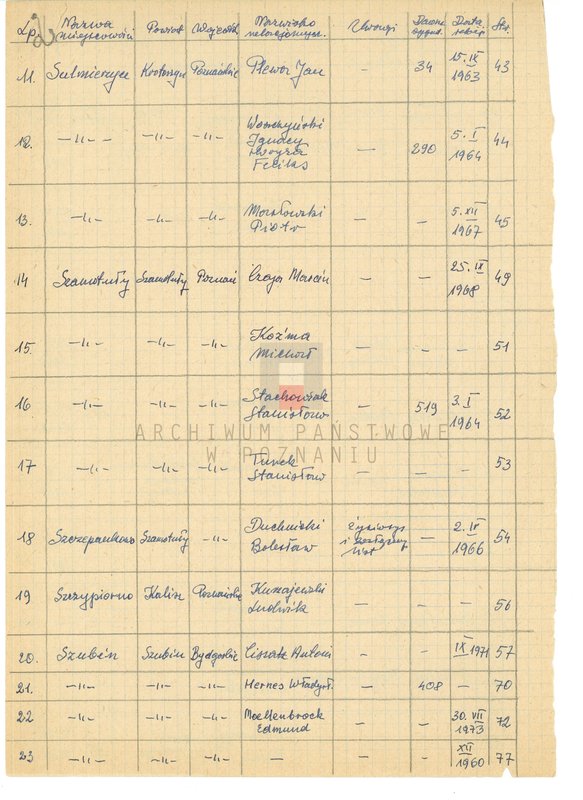 Lp. Nazwa miejscowości Powiat Wojewódz. Nazwisko Uwagi Dawna sygnat. Data Str.
11. Sulmierzyce Krotoszyn Poznańskie Plewa Jan – 34 15. IX 1963 43
12. –„– –„– –„– Ignacy Feliks – 290 5. I 1964 44
13. –„– –„– –„– Piotr – – 5. XII 1967 45
14 Szamotuły Szamotuły Poznań Marcin – – 25. IX 1968 49
15. –„– –„– –„– Koźma Michał – – – 51
16 –„– –„– –„– Stachowiak Stanisław – 519 3. I 1964 52
17 –„– –„– –„– Turek Stanisław – – – 53
18 Szczepankowo Szamotuły –„– Bolesław życiorys i list – 2. IV 1966 54
19 Szczypiorno Kalisz Poznańskie Ludwik – – – 56
20. Szubin Szubin Bydgoskie Antoni – – IX 1971 57
21. –„– –„– –„– Hernes Władysł. – 408 – 70
22 –„– –„– –„– Moellenbrock Edmund – – 30. VII 1973 72
23 –„– –„– –„– — – – XII 1960 77
ARCHIWUM PAŃSTWOWE
W POZNANIU